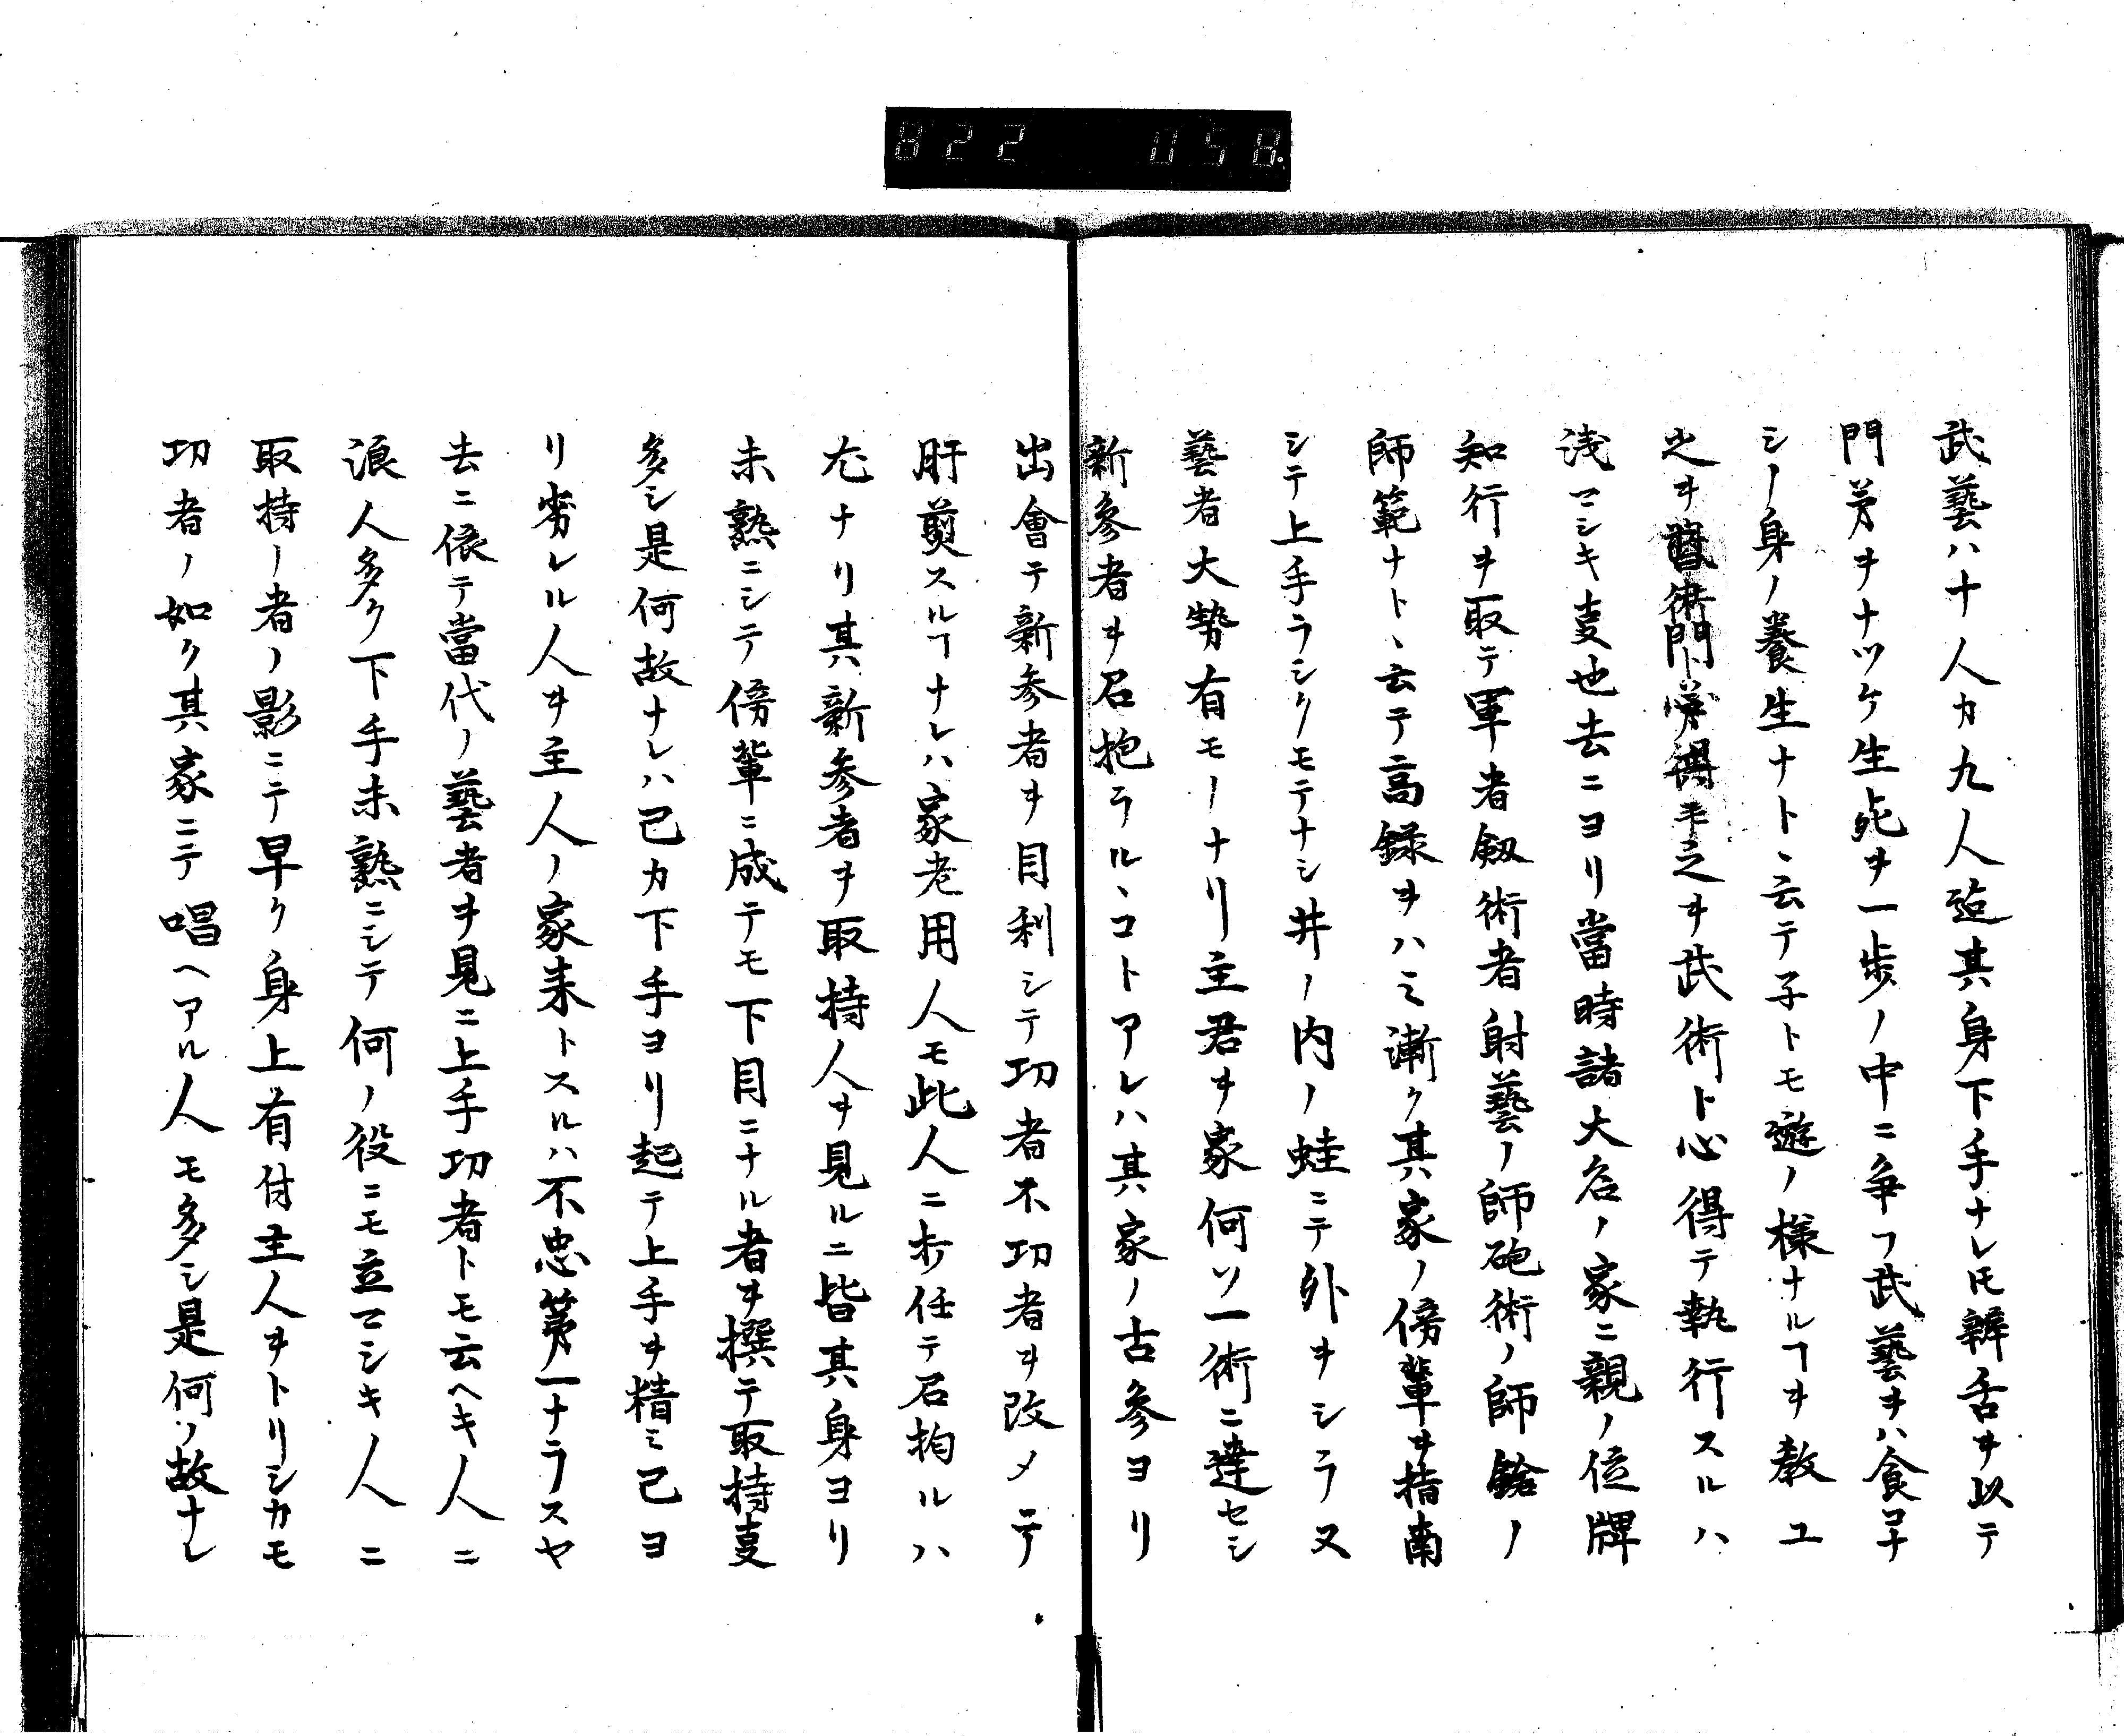 822 058
武藝ハ十人カ九人迠其身下手ナレ𪜈辨舌ヲ以テ
門弟ヲナツケ生死ヲ一歩ノ中ニ争フ武藝ヲハ食コナ
シノ身ノ養生ナトヽ云テ子トモ遊ノ様ナルヿヲ教ユ
之ヲ術門弟得之ヲ武術ト心得テ執行スルハ
浅マシキ叓也去ニヨリ當時諸大名ノ家ニ親ノ位牌
知行ヲ取テ軍者劔術者射藝ノ師砲術ノ師鎗ノ
師範ナトヽ云テ高録ヲハミ漸ク其家ノ傍輩ヲ指南
シテ上手ラシクモテナシ井ノ内ノ蛙ニテ外ヲシラヌ
藝者大勢有モノナリ主君ヲ家何ソ一術ニ達セシ
新參者ヲ召抱ラルヽコトアレハ其家ノ古參ヨリ
出會テ新参者ヲ目利シテ功者不功者ヲ改メテ
肝煎スルヿナレハ家老用人モ此人ニ打任テ召抱ルハ
尤ナリ其新参者ヲ取持人ヲ見ルニ皆其身ヨリ
未熟ニシテ傍輩ニ成テモ下目ニナル者ヲ撰テ取持叓
多シ是何故ナレハ己カ下手ヨリ起テ上手ヲ猜ミ己ヨ
リ劣レル人ヲ主人ノ家来トスルハ不忠第一ナラスヤ
去ニ依テ當代ノ藝者ヲ見ニ上手功者トモ云ヘキ人ニ
浪人多ク下手未熟ニシテ何ノ役ニモ立マシキ人ニ
取持ノ者ノ影ニテ早ク身上有付主人ヲトリシカモ
功者ノ如ク其家ニテ唱ヘアル人モ多シ是何ノ故ナレ